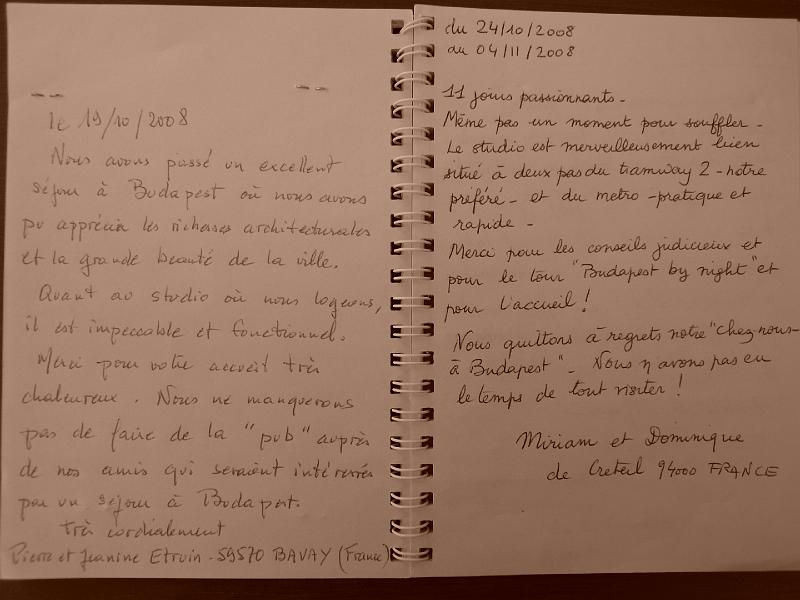 le 19/10/2008
Nous avons passé un excellent
séjour à Budapest où nous avons
pu apprécier les richesses architecturales
et la grande beauté de la ville.
Quant au studio où nous logeons,
il est impeccable et fonctionnel.
Merci pour votre accueil très
chaleureux. Nous ne manquerons
pas de faire de la "pub" auprès
de nos amis qui seraient intéressés
par un séjour à Budapest.
très cordialement
Pierre et Jeanine Etruin - 59570 BAVAY (France)
du 24/10/2008
au 04/11/2008
11 jours passionnants -
Même pas un moment pour souffler -
Le studio est merveilleusement bien
situé à deux pas du tramway 2 - notre
préféré - et du metro - pratique et
rapide -
Merci pour les conseils judicieux et
pour le tour "Budapest by night" et
pour l'accueil !
Nous quittons à regrets notre "chez-nous-
à Budapest" - Nous n'avons pas eu
le temps de tout visiter !
Miriam et Dominique
de Creteil 94000 FRANCE